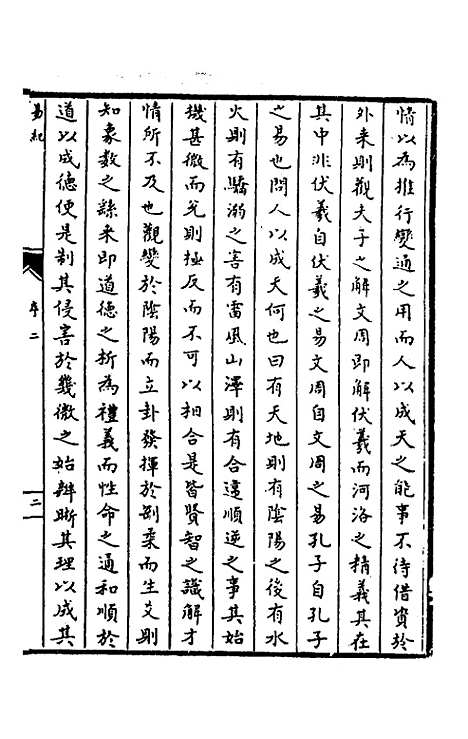 情以為推行變通之用而人以成天之能事不待借資於
外来則觀夫子之解文周即解伏羲而河洛之精義其在
其中非伏羲自伏羲之易文周自文周之易孔子自孔子
之易也問人以成天何也曰有天地則有陰陽之後有水
火則有驕溺之害有雷風山澤則有合違順逆之事其始
機甚微而究則極反而不可以相合是皆賢智之識解才
情所不及也觀變於陰陽而立卦發揮於剛柔而生爻則
知象數之繇来即道德之析為禮義而性命之通和順於
道以成德便是制其侵害於幾微之始辨晰其理以成其
易紀
序二
二